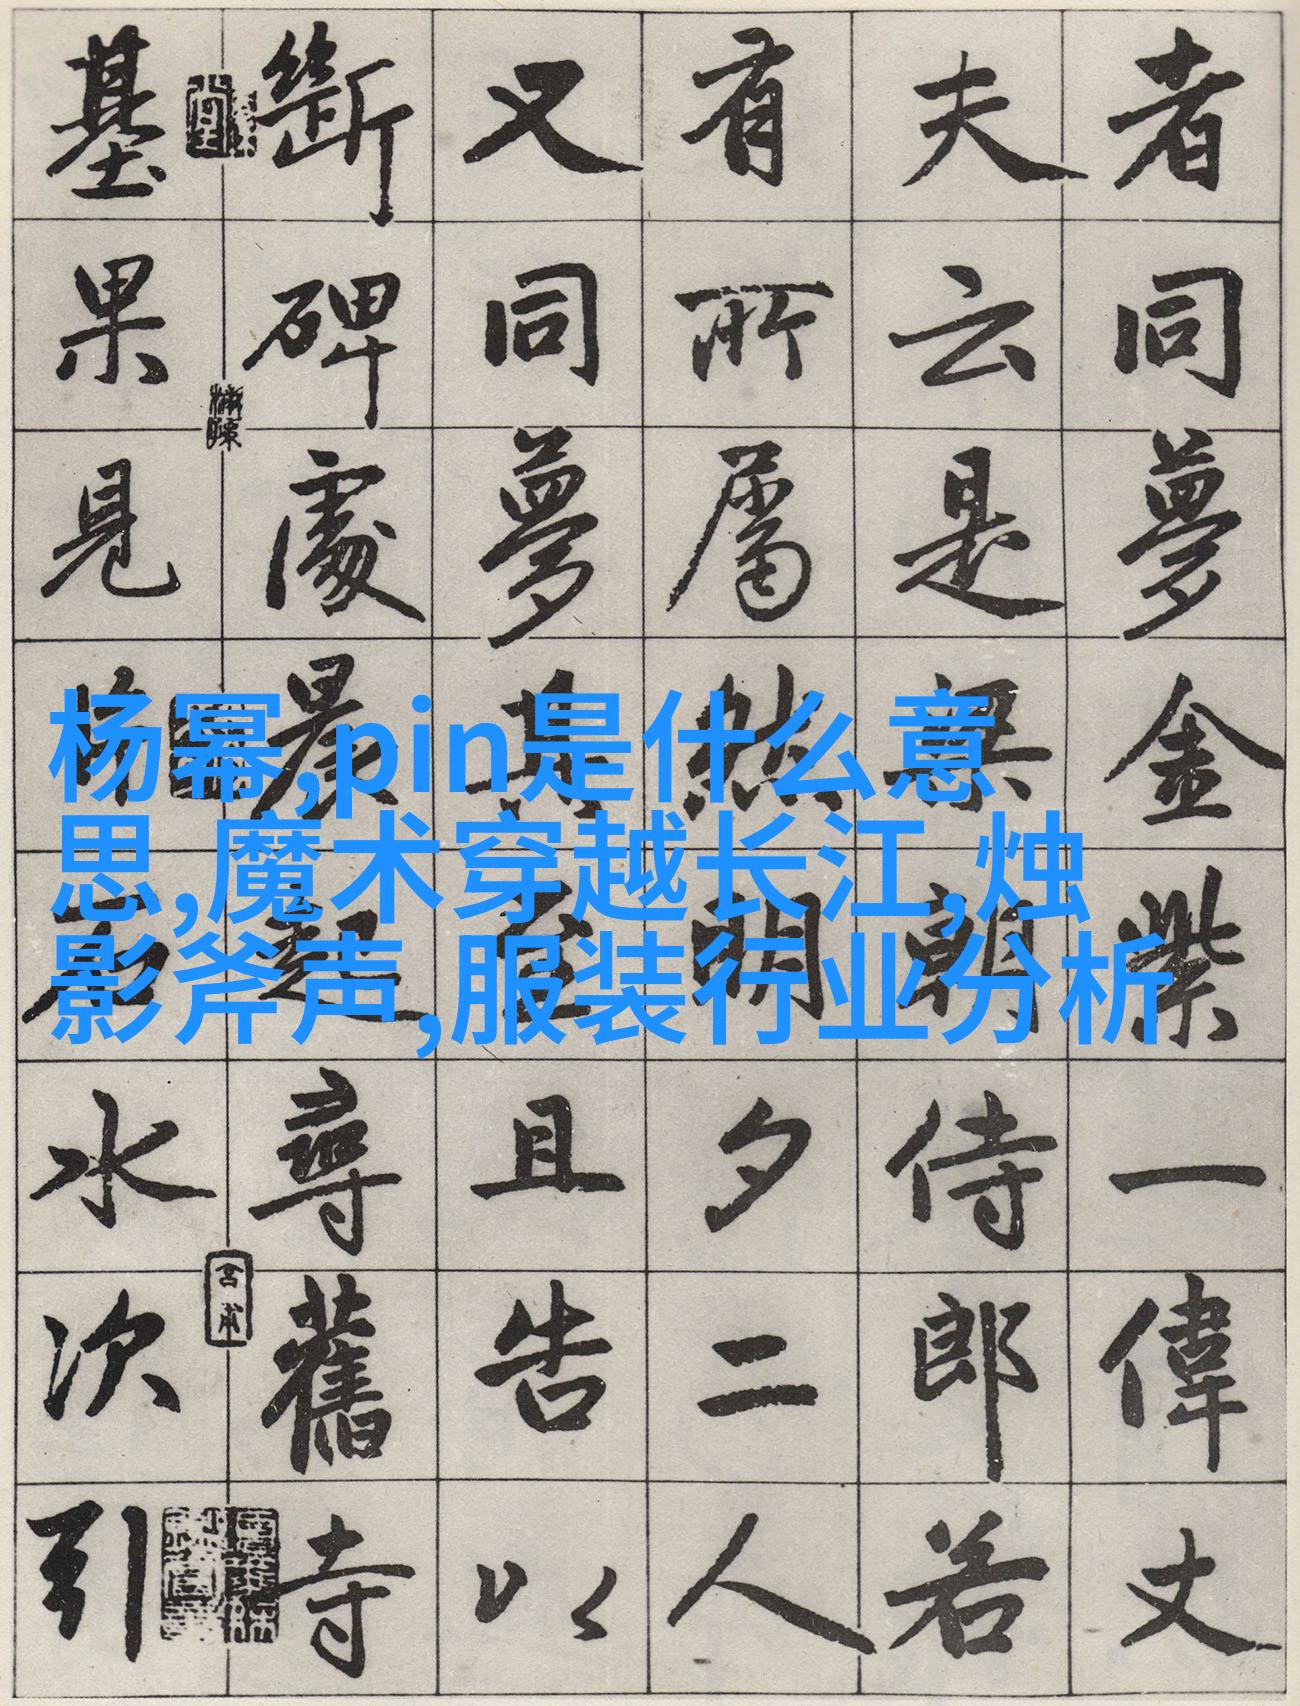 者同夢金紫一偉丈
夫云是梁朗侍郎若
有所屬然明夕二人
又同夢其至且告以
斷碑處晨起尋舊寺
基果見楊石水次引
杨幂,pin是什么意
思,魔术穿越长江,烛
影斧声,服装行业分析